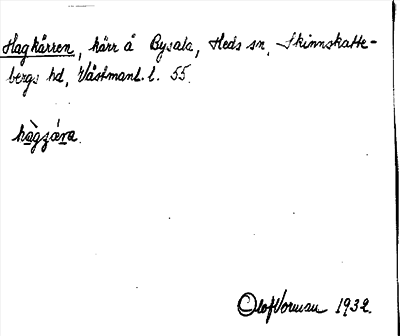 Hagkärren, kärr å Bysala, Heds sn, Skinnskatte-
bergs hd, Västmanl. l. 55.
hàgzára.
Olof Vorman 1932.